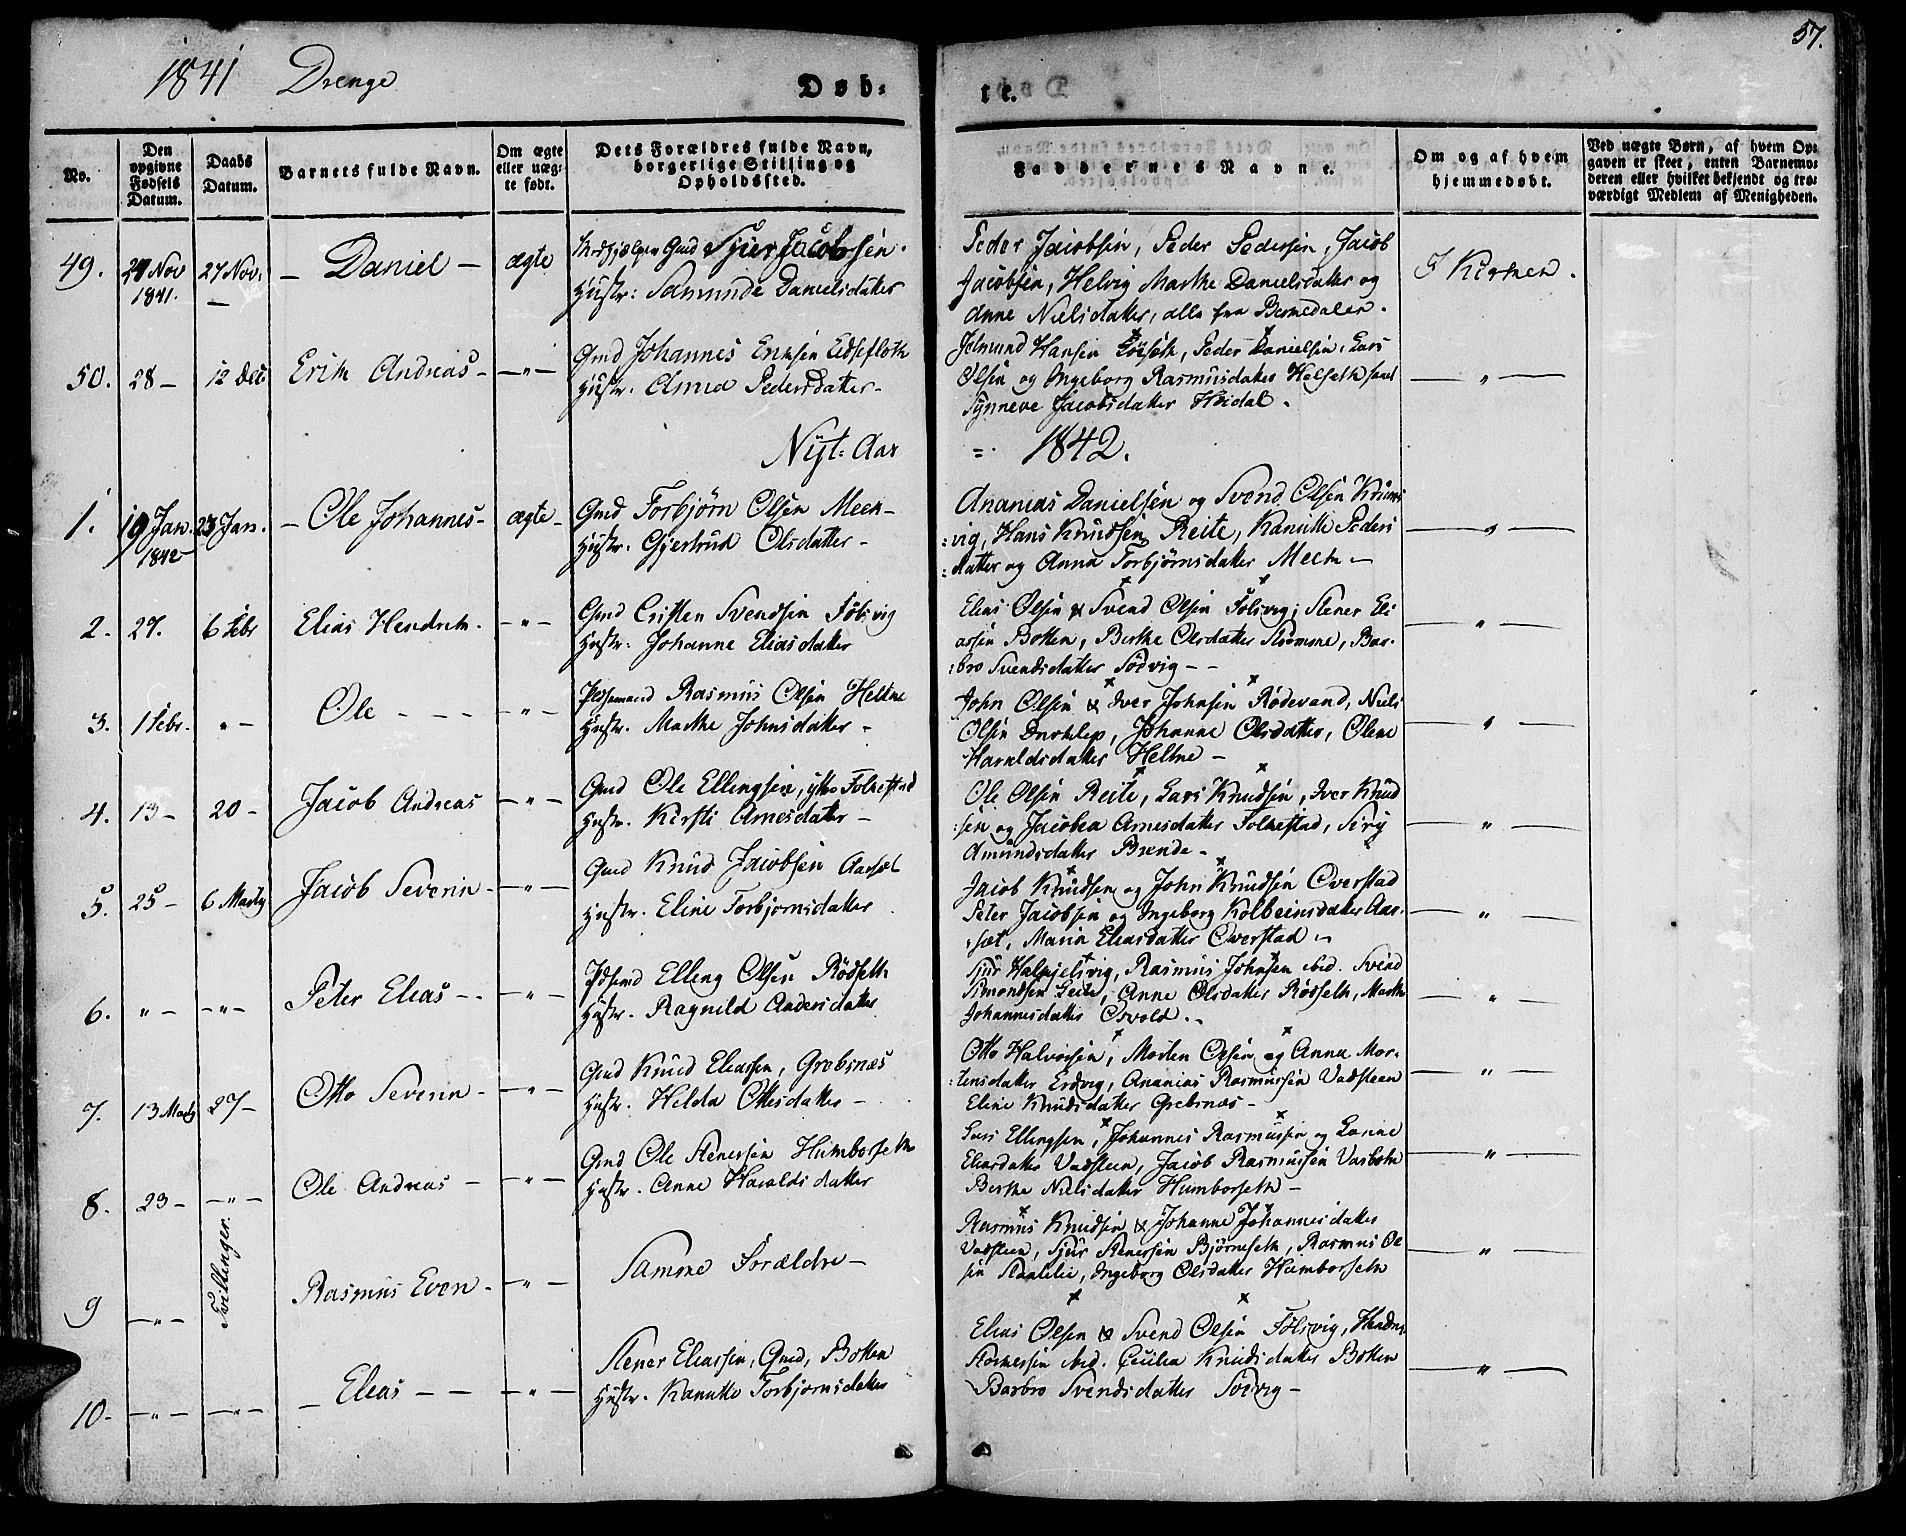 1841 Drenge Døb-
te. 57.
No.
Den opgivne Fødsels Datum.
Daabs Datum.
Barnets fulde Navn.
Om ægte eller uæg-
te født.
Dets Forældres fulde Navn,
borgerlige Stilling og
Opholdssted.
Faddernes Navne.
Om og af hvem
hjemmedøbt.
Ved uægte Børn, af hvem Op-
gaven er skeet, enten Barnemo-
deren eller hvilket bekjendt og tro-
værdigt Medlem af Menigheden.
49. 27 Nov 1841. 27 Nov. – Daniel – ægte
Gmd Sjur Jacobsen.
Hustr: Danielsdatter
Peder Jacobsen, Peder Pedersen, Jacob
Jacobsen, Helvig Marthe Danielsdatter og
Anne Nielsdatter, alle fra Bernedalen.
I Kirken.
50. 28 – 12 Dec Erik Andreas – – " –
Gmd Johannes Eriksen Eidsefloth
Hustr. Anna Pedersdatter –
Hansen, Peder Danielsen, Lars
Olsen og Ingeborg Rasmusdatter Helseth samt
Synneve Jacobsdatter Hvidal.
– " –
Nyt-Aar
=. 1842.
1. 19 Jan. 1842 23 Jan. – Ole Johannes – ægte –
Gmd Torbjørn Olsen Meek –
Hustr. Gjertrud Olsdatter –
Ananias Danielsen og Svend Olsen Krums
vig, Hans Knudsen Reite, Kanutte Peders
datter og Anna Torbjørnsdatter Meek –
– " –
2. 27. 6 Febr Elias Hendrik. – " –
Gmd Cristen Svendsen Sølsvig
Hustr: Johanne Eliasdatter
Elias Olsen & Svend Olsen Følsvig, Stener Eli
assen Botten, Berthe Olsdatter Strømme, Bar-
bro Svendsdatter Södvig – –
– " –
3. 1 Febr. " – Ole – – – – " –
Rasmus Olsen Heltne
Hustr. Marthe Johnsdatter –
John Olsen & Iver Johnsen Rødevand, Niels
Olsen, Johanne Olsdatter, Olene
Haraldsdatter Heltne –
– " –
4. 13 – 20 – Jacob Andreas – " –
Gmd Ole Ellingsen, ytre Folkestad
Hustr. Kirsti Arnesdatter –
Ole Olsen Reite, Lars Knudsen, Iver Knud
sen og Jacobea Arnesdatter Folkestad, Siry
Amundsdatter Brende –
– " –
5. 25 – 6 Marty Jacob Severin – – " –
Gmd Knud Jacobsen Aarset
Hustr. Eline Torbjørnsdatter
Jacob Knudsen og John Knudsen Overstad
Peter Jacobsen og Ingeborg Kolbeinsdatter Aar-
set, Maria Eliasdatter Overstad –
– " –
6. " – – " – Peter Elias – – – " –
Elling Olsen Rödseth
Hustr. Ragnild Andersdatter
Sjur Halkjelsvig, Rasmus Johnsen ibid. Svend
Simondsen Leite, Anne Olsdatter Rödseth, Marthe
Johannesdatter Osvold. –
– " –
7. 13 Marty 27 – Otto Severin – – " –
Gmd Knud Eliassen, Grebsnæs
Hustr. Helda Ottesdatter –
Otto Halvorsen, Morten Olsen og Anna Mor-
tensdatter Erdvig, Ananias Rasmussen Vadsteen
Eline Knudsdatter Grebsnæs –
– " –
8. 23 – – " – Ole Andreas – – " –
Gmd Ole Stenersen Humborseth
Hustr. Anne Haraldsdatter
Lars Ellingsen, Johannes Rasmussen og Larine
Eliasdatter Vadsteen, Jacob Rasmussen Vasboth
Berthe Nielsdatter Humborseth –
– " –
9 – " – Tvillinger. Rasmus Even – – " –
Samme Forældre –
Rasmus Knudsen & Johanne Johannesdatter
Vadsteen, Sjur Stenersen Bjørneseth, Rasmus Ol
sen, Ingeborg Olsdatter Humborseth
– " –
10. – " – – " – – Elias – – – " –
Stener Eliassen, Gmd, Botten
Hustr. Kanutte Torbjørnsdatter
Elias Olsen & Svend Olsen Følsvig, Hendr.
ibid. Cecilia Knudsdatter Botten
Barbro Svendsdatter Solvig –
– " –